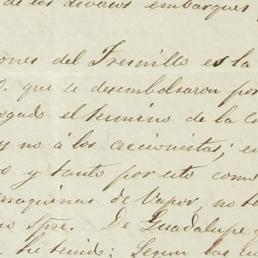 de los diversos embarques
ones del Fresnillo es la
que se desembolsaron por
ogado el termino de la Co
y no á los accionistas; e
o y tanto por esto como
maquinas de Vapor, no
De Guadalupe y
he tenido: Segun las cu